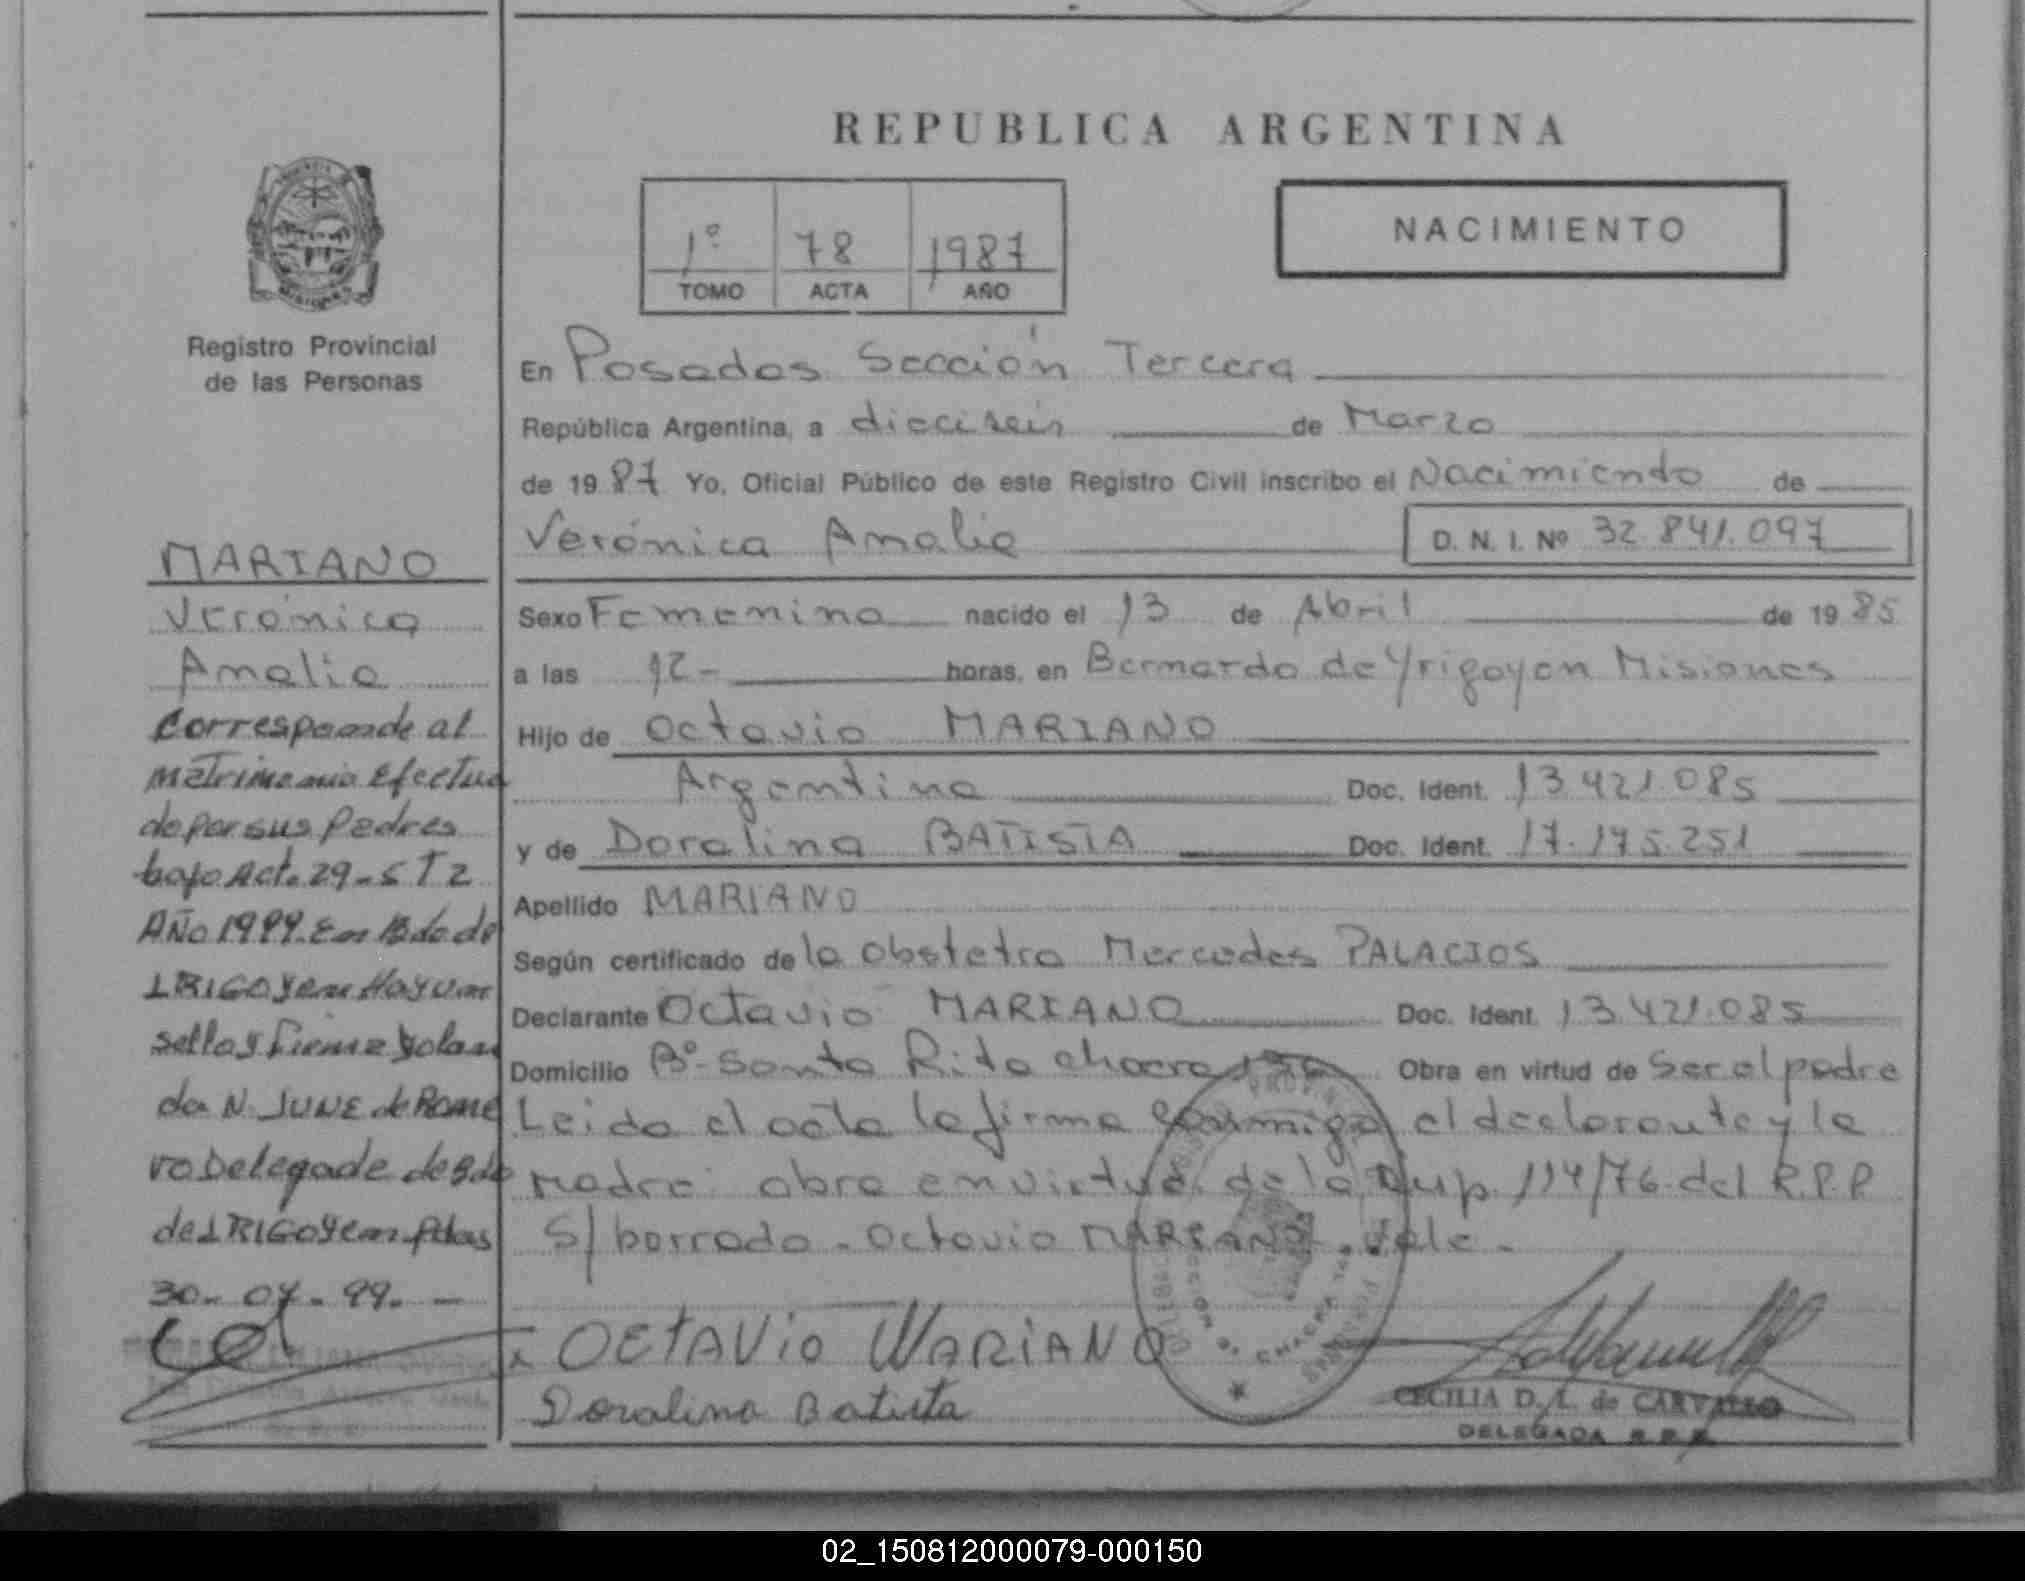 REPUBLICA ARGENTINA
NACIMIENTO
1º 78 1987
TOMO ACTA AÑO
Registro Provincial
de las Personas
MARIANO
Verónica
Amalia
Corresponde al
Matrimonio Efectua
do por sus Padres
bajo Act. 29 - S T 2
Año 1999 En Bdo de
IRIGOYEN Hay un
sello y firma Yolan
da N. JUNE de Rome
ro Delegada de Bdo
de IRIGOYEN Pdas
30 - 07 - 99. -
En Posadas Sección Tercera
República Argentina, a dieciseis de Marzo
de 19 87 Yo, Oficial Público de este Registro Civil inscribo el Nacimiento de
Verónica Amalia D. N. I. Nº 32.841.097
Sexo Femenino nacido el 13 de Abril de 19 85
a las 12- horas, en Bernardo de Yrigoyen Misiones
Hijo de Octavio MARIANO
Argentino Doc. Ident. 13.421.085
y de Doralina BATISTA Doc. Ident. 17.175.251
Apellido MARIANO
Según certificado de la Obstetra Mercedes PALACIOS
Declarante Octavio MARIANO Doc. Ident. 13.421.085
Domicilio Bº- Santa Rita chacra Obra en virtud de Ser el padre
Leida el acta la firma conmigo el declarante y la
madre: obra en virtud de la Disp. 114/76 del R.P.P
S/ borrado - Octavio MARIANO - Vale -
OCTAVIO MARIANO
Doralina Batista
CECILIA D. L. de CARVALLO
DELEGADA R.P.P.
02_150812000079-000150